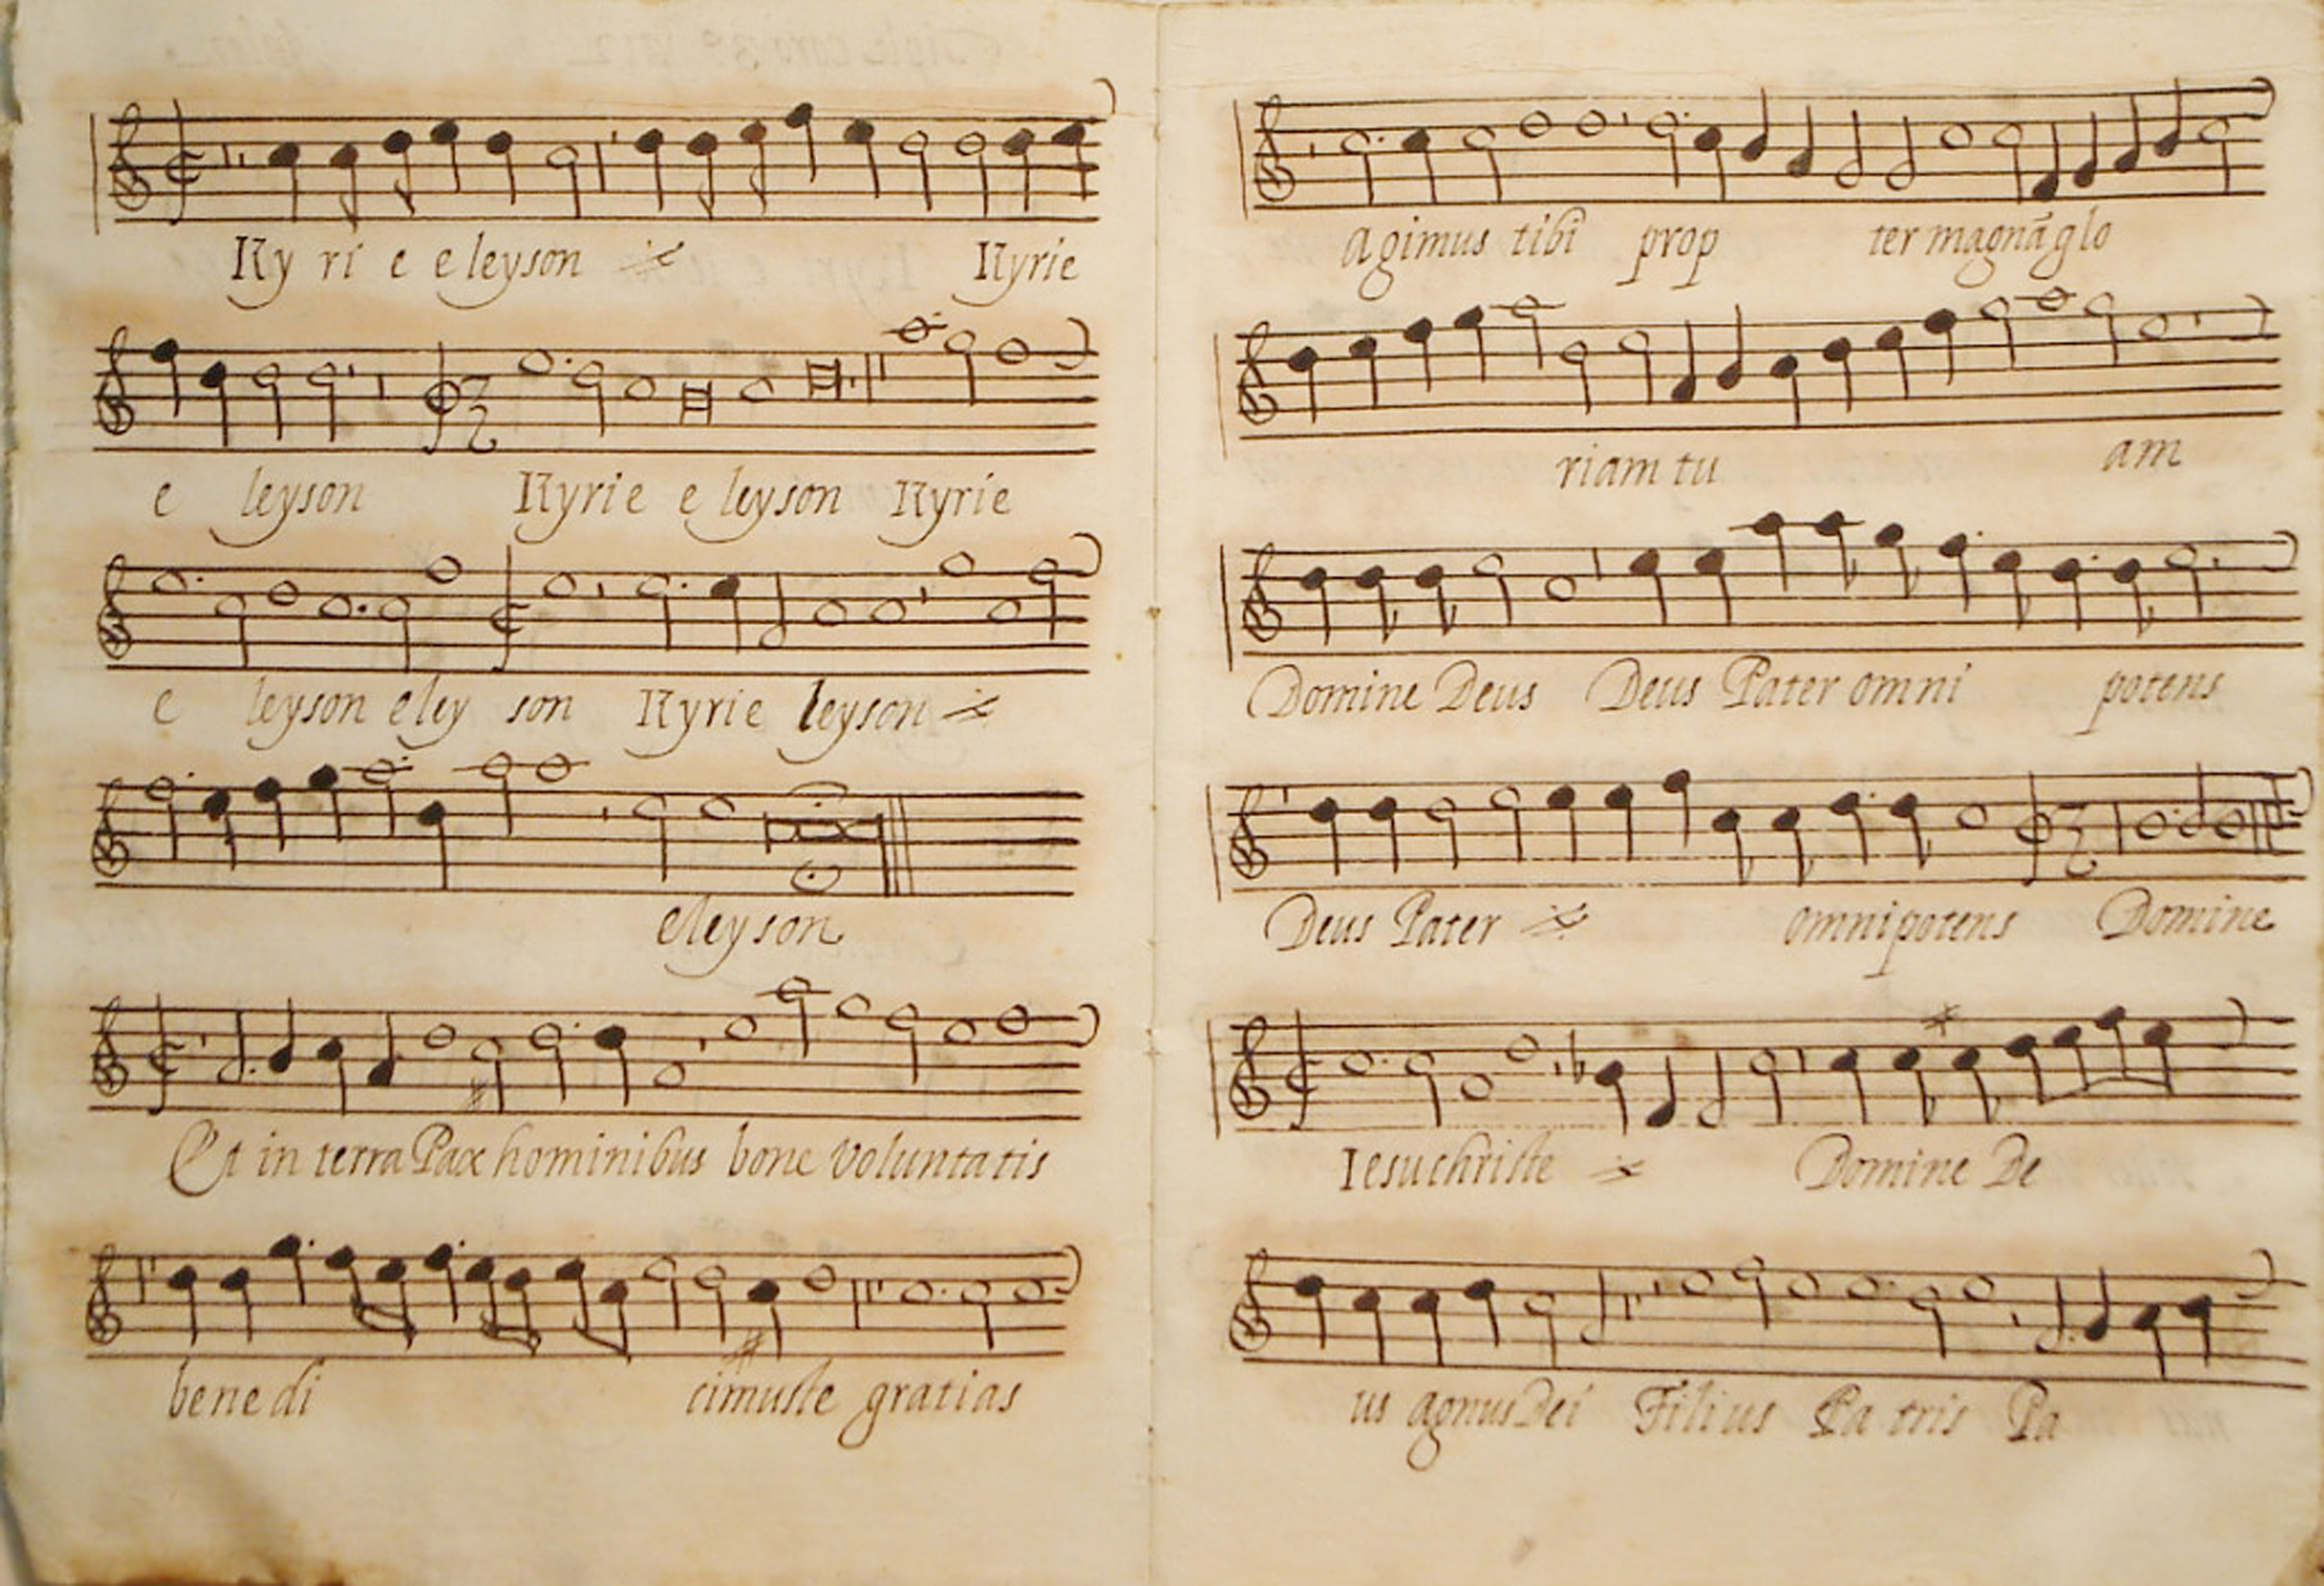 Ky ri e eleyson Kyrie
e leyson Kyrie e leyson Kyrie
e leyson eley son Kyrie leyson
eleyson
Et in terra Pax hominibus bone voluntatis
bene di cimuste gratias
agimus tibi prop ter magnã glo
riam tu am
Domine Deus Deus Pater omni potens
Deus Pater omnipotens Domine
Iesuchriste Domine De
us agnus Dei Filius Pa tris Pa